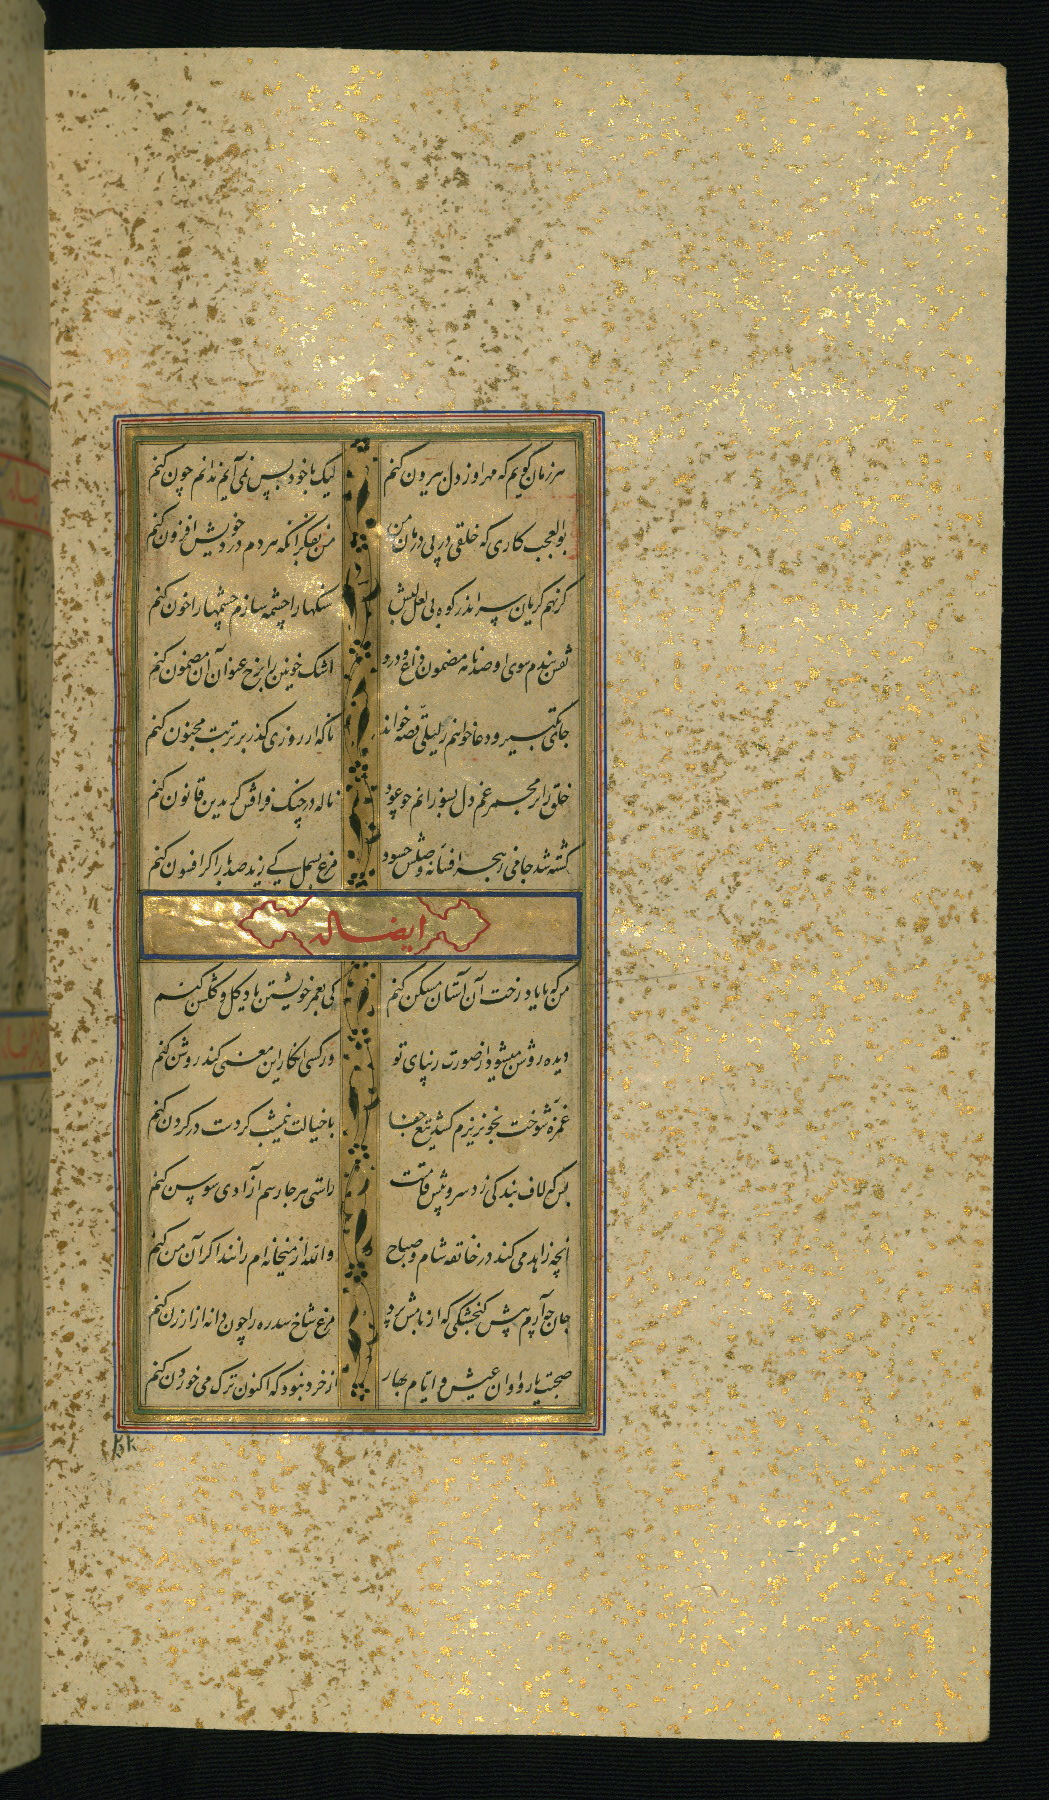 هر زمان گویم که مهر او ز دل بیرون کنم لیک با خود بس نمی آیم ندانم چون کنم
بوالعجب کاری که خلقی در پی درمان من من بفکر آنکه هر دم درد خویش افزون کنم
گر نهم گریان سر اندر کوه بی لعل لبش سنگها را چشمه سازم چشمها را خون کنم
نقش بندم سوی او صد نامه مضمون داغ و درد اشک خونین را برخ عنوان آن مضمون کنم
جای تکبیر و دعا خوانم ز لیلی قصه خواند تا که ار روزی گذر بر تربت مجنون کنم
خلق را بر مجمر غم دل بسوزانم چو عود ناله در چنگ فراقش گر بدین قانون کنم
کشته شد جامی ز هجر افسانه وصلش چه سود مرغ بسمل کی زید صد بار اگر افسون کنم
ایضا له
من که با یاد رخت آن آستان مسکن کنم کی بعمر خویشتن یاد گل و گلشن کنم
دیده روشن میشود از صورت زیبای تو ور کسی انکار این معنی کند روشن کنم
غمزه شوخت بخونریزم کشد تیغ جفا با خیالت نیم شب گر دست در گردن کنم
بس که لاف بندگی زد سرو پیش قامتت راستی هر جا رسم آزادی سوسن کنم
آنچه زاهد می کند در خانقه شام و صباح والله از میخانه ام رانند اگر آن من کنم
جان چو آرم پیش گنجشکی که از بامش پرد مرغ شاخ سدره را چون دانه از ارزن کنم
صحبت یار و اوان عیش و ایام بهار از خرد نبود که اکنون ترک می خوردن کنم